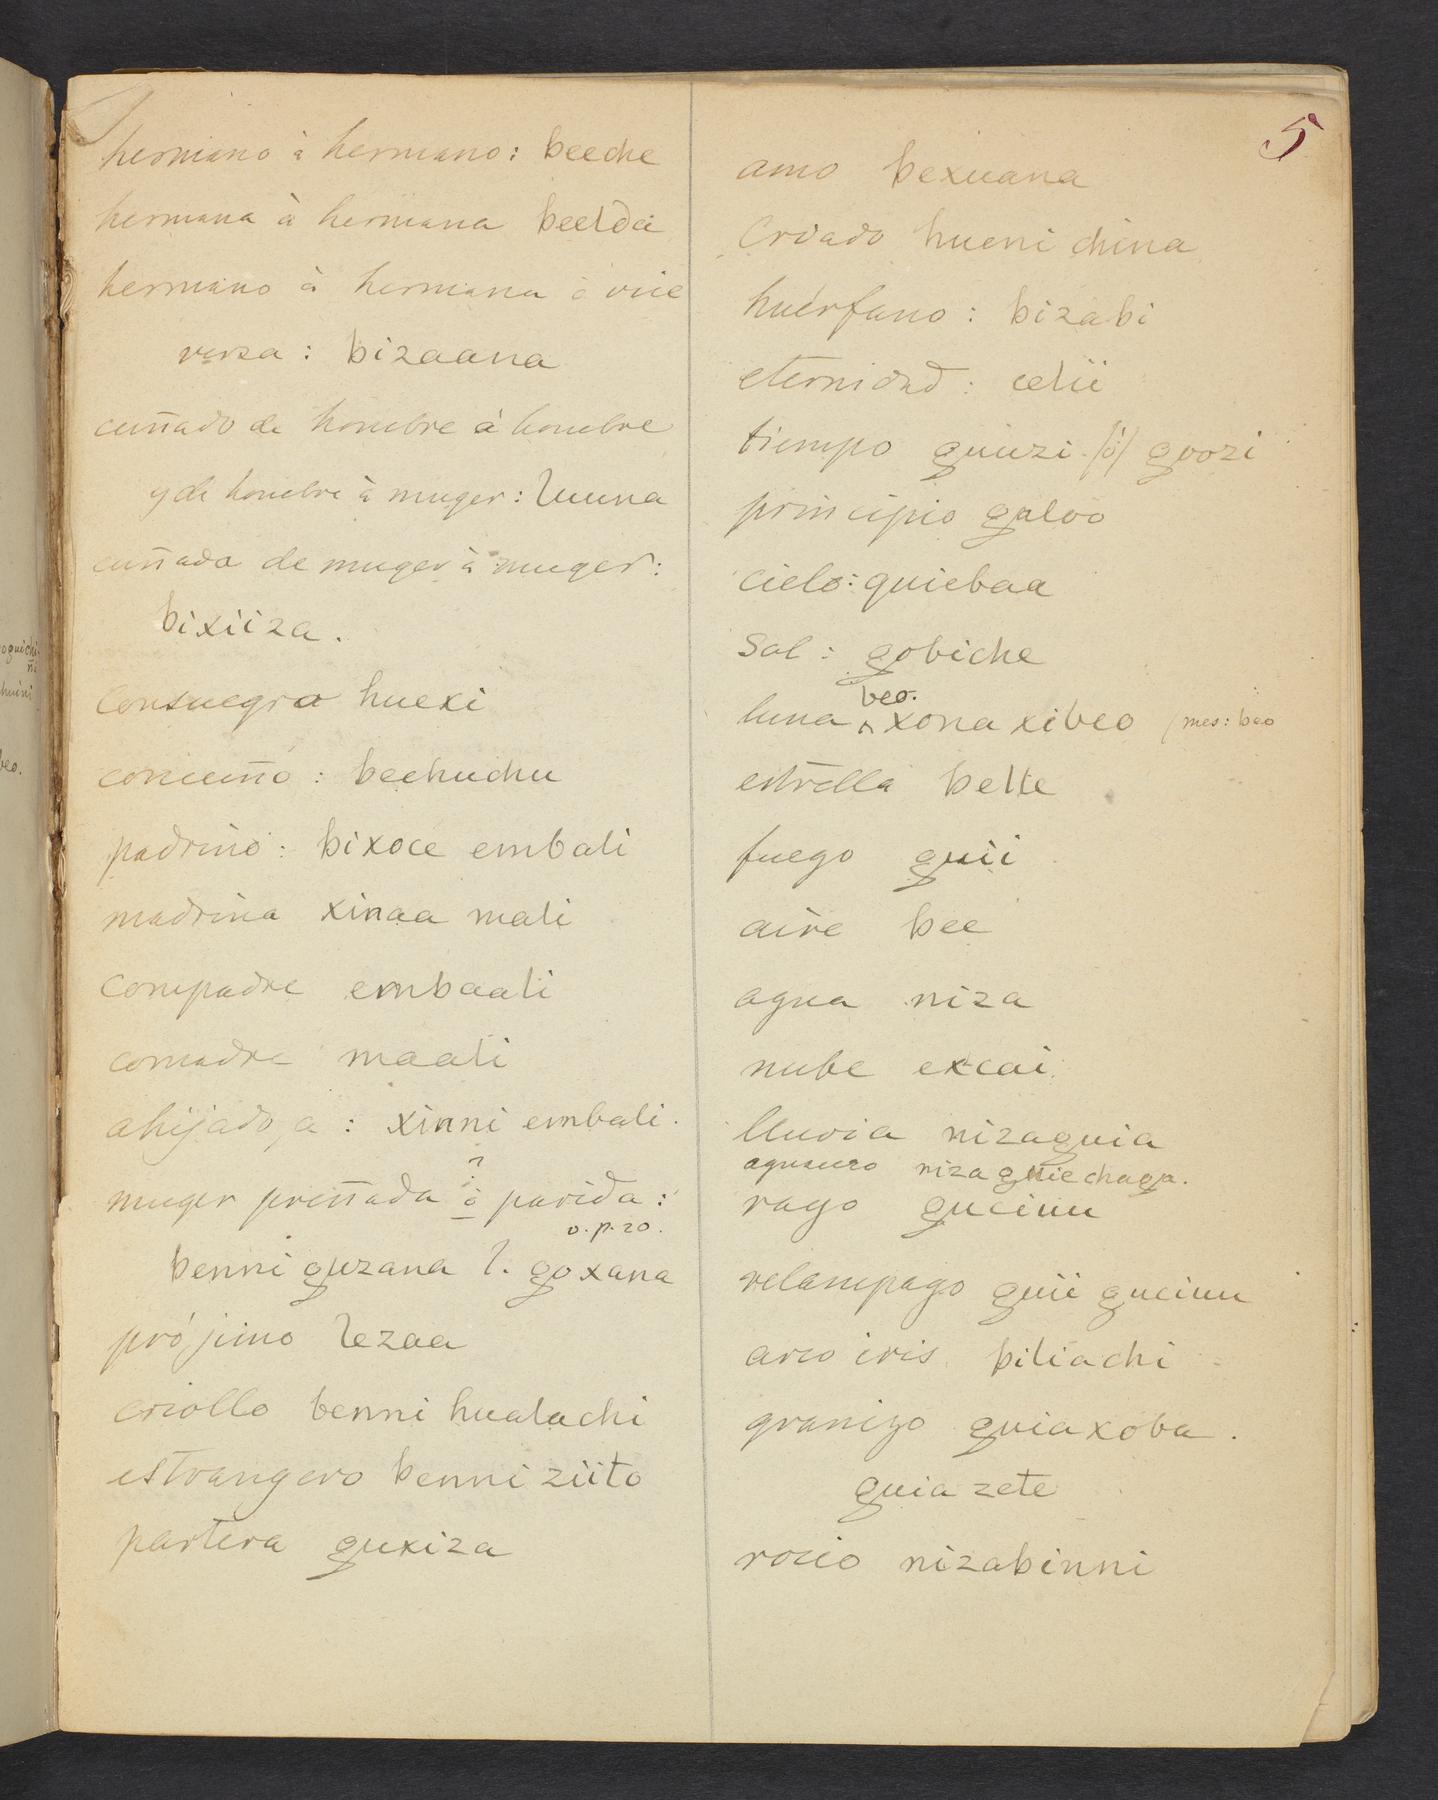 5
hermano à hermano: beeche
hermana à hermana beelda
hermano à hermana ò vice
versa: bizaana
cuñado de hombre à hombre
y de hombre à muger: luuna
cuñada de muger à muger:
bixiiza.
consuegro huexi
concuño: bechuchu
padrino: bixoce embali
madrina xinaa mali
compadre embaali
comadre maali
ahijado, a: xinni embali.
?
muger preñada ò parida:
v. p. 20.
benni guzana l. goxana
prójimo lezaa
criollo benni hualachi
estrangero benni ziito
partera guxiza
amo bexuana
criado hueni china
huérfano: bizabi
eternidad: celii
tiempo guiezi /ò/ goozi
principio galoo
cielo: quiebaa
Sol: gobiche
beo.
luna ^ xonaxibeo / mes: beo
estrella belle
fuego guii
aire bee
agua niza
nube excai
lluvia nizaguia
aguacero niza guiechaga.
rayo gucinu
relampago guii gucinu
arco iris biliachi
granizo guiaxoba.
guia zete
rocio nizabinni